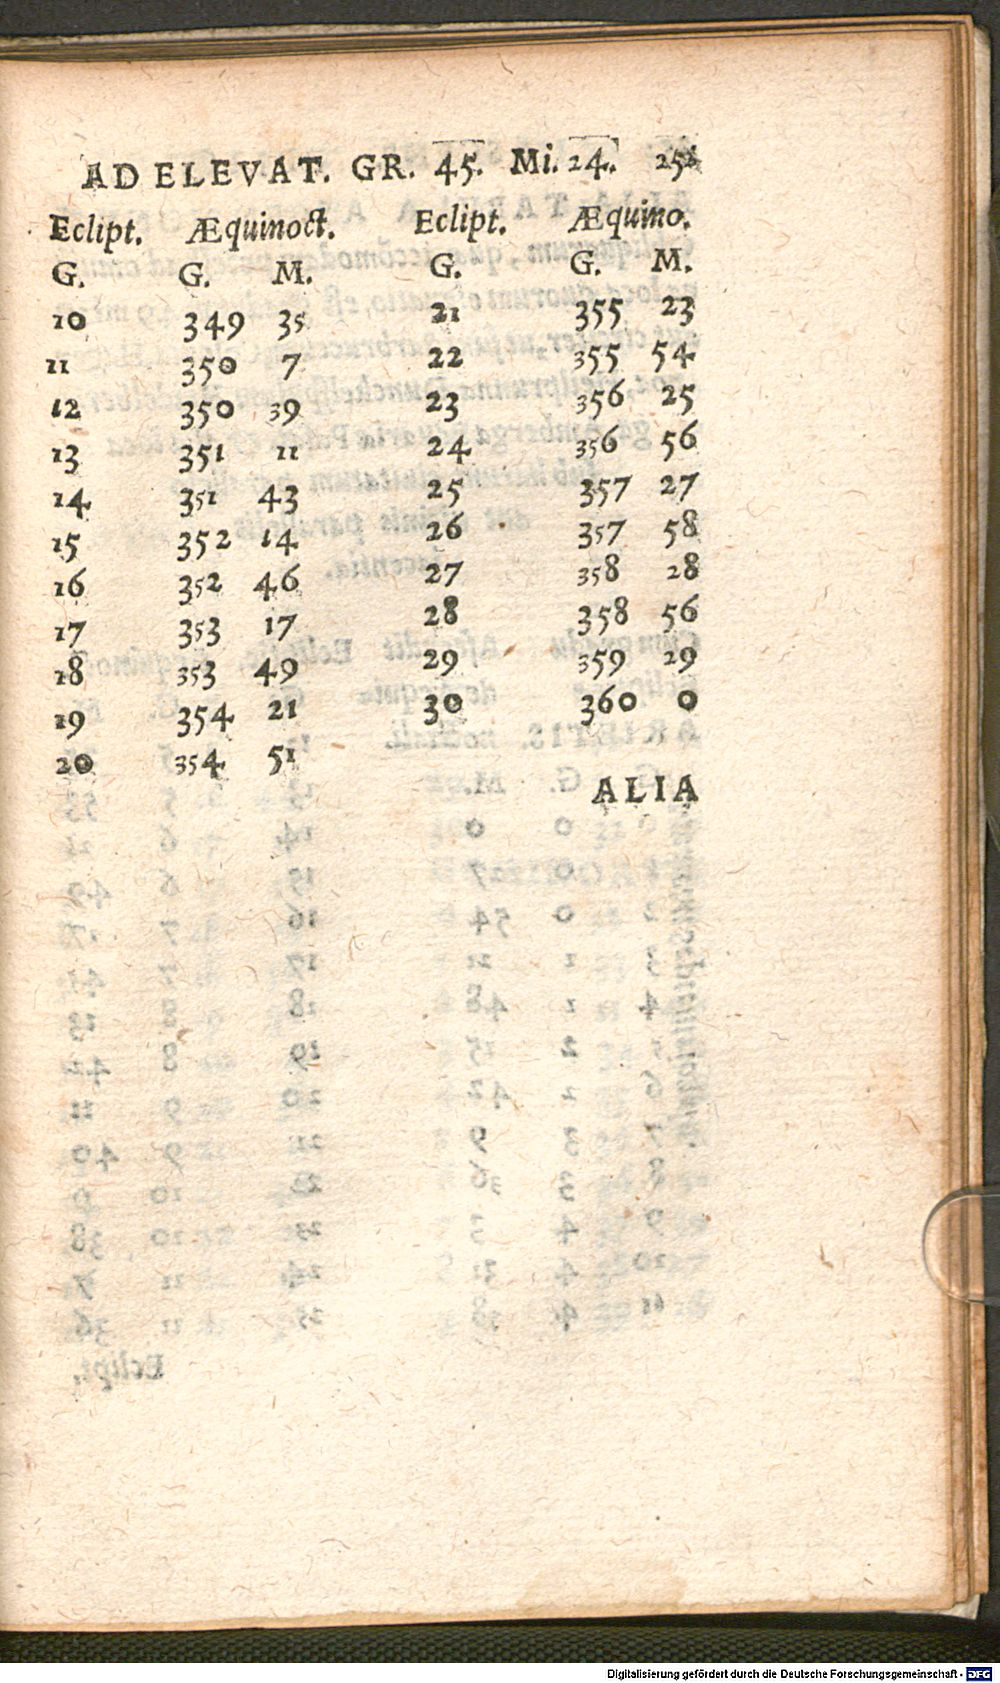 AD ELEVAT. GR. 45. Mi. 24. 251
Eclipt. Æquinoct. Eclipt. Æquino.
G. G. M. G. G. M.
10 349 35 21 355 23
11 350 7 22 355 54
12 350 39 23 356 25
13 351 11 24 356 56
14 351 43 25 357 27
15 352 14 26 357 58
16 352 46 27 358 28
17 353 17 28 358 56
18 353 49 29 359 29
19 354 21 30 360 0
20 354 51
ALIA
Digitalisierung gefördert durch die Deutsche Forschungsgemeinschaft - DFG